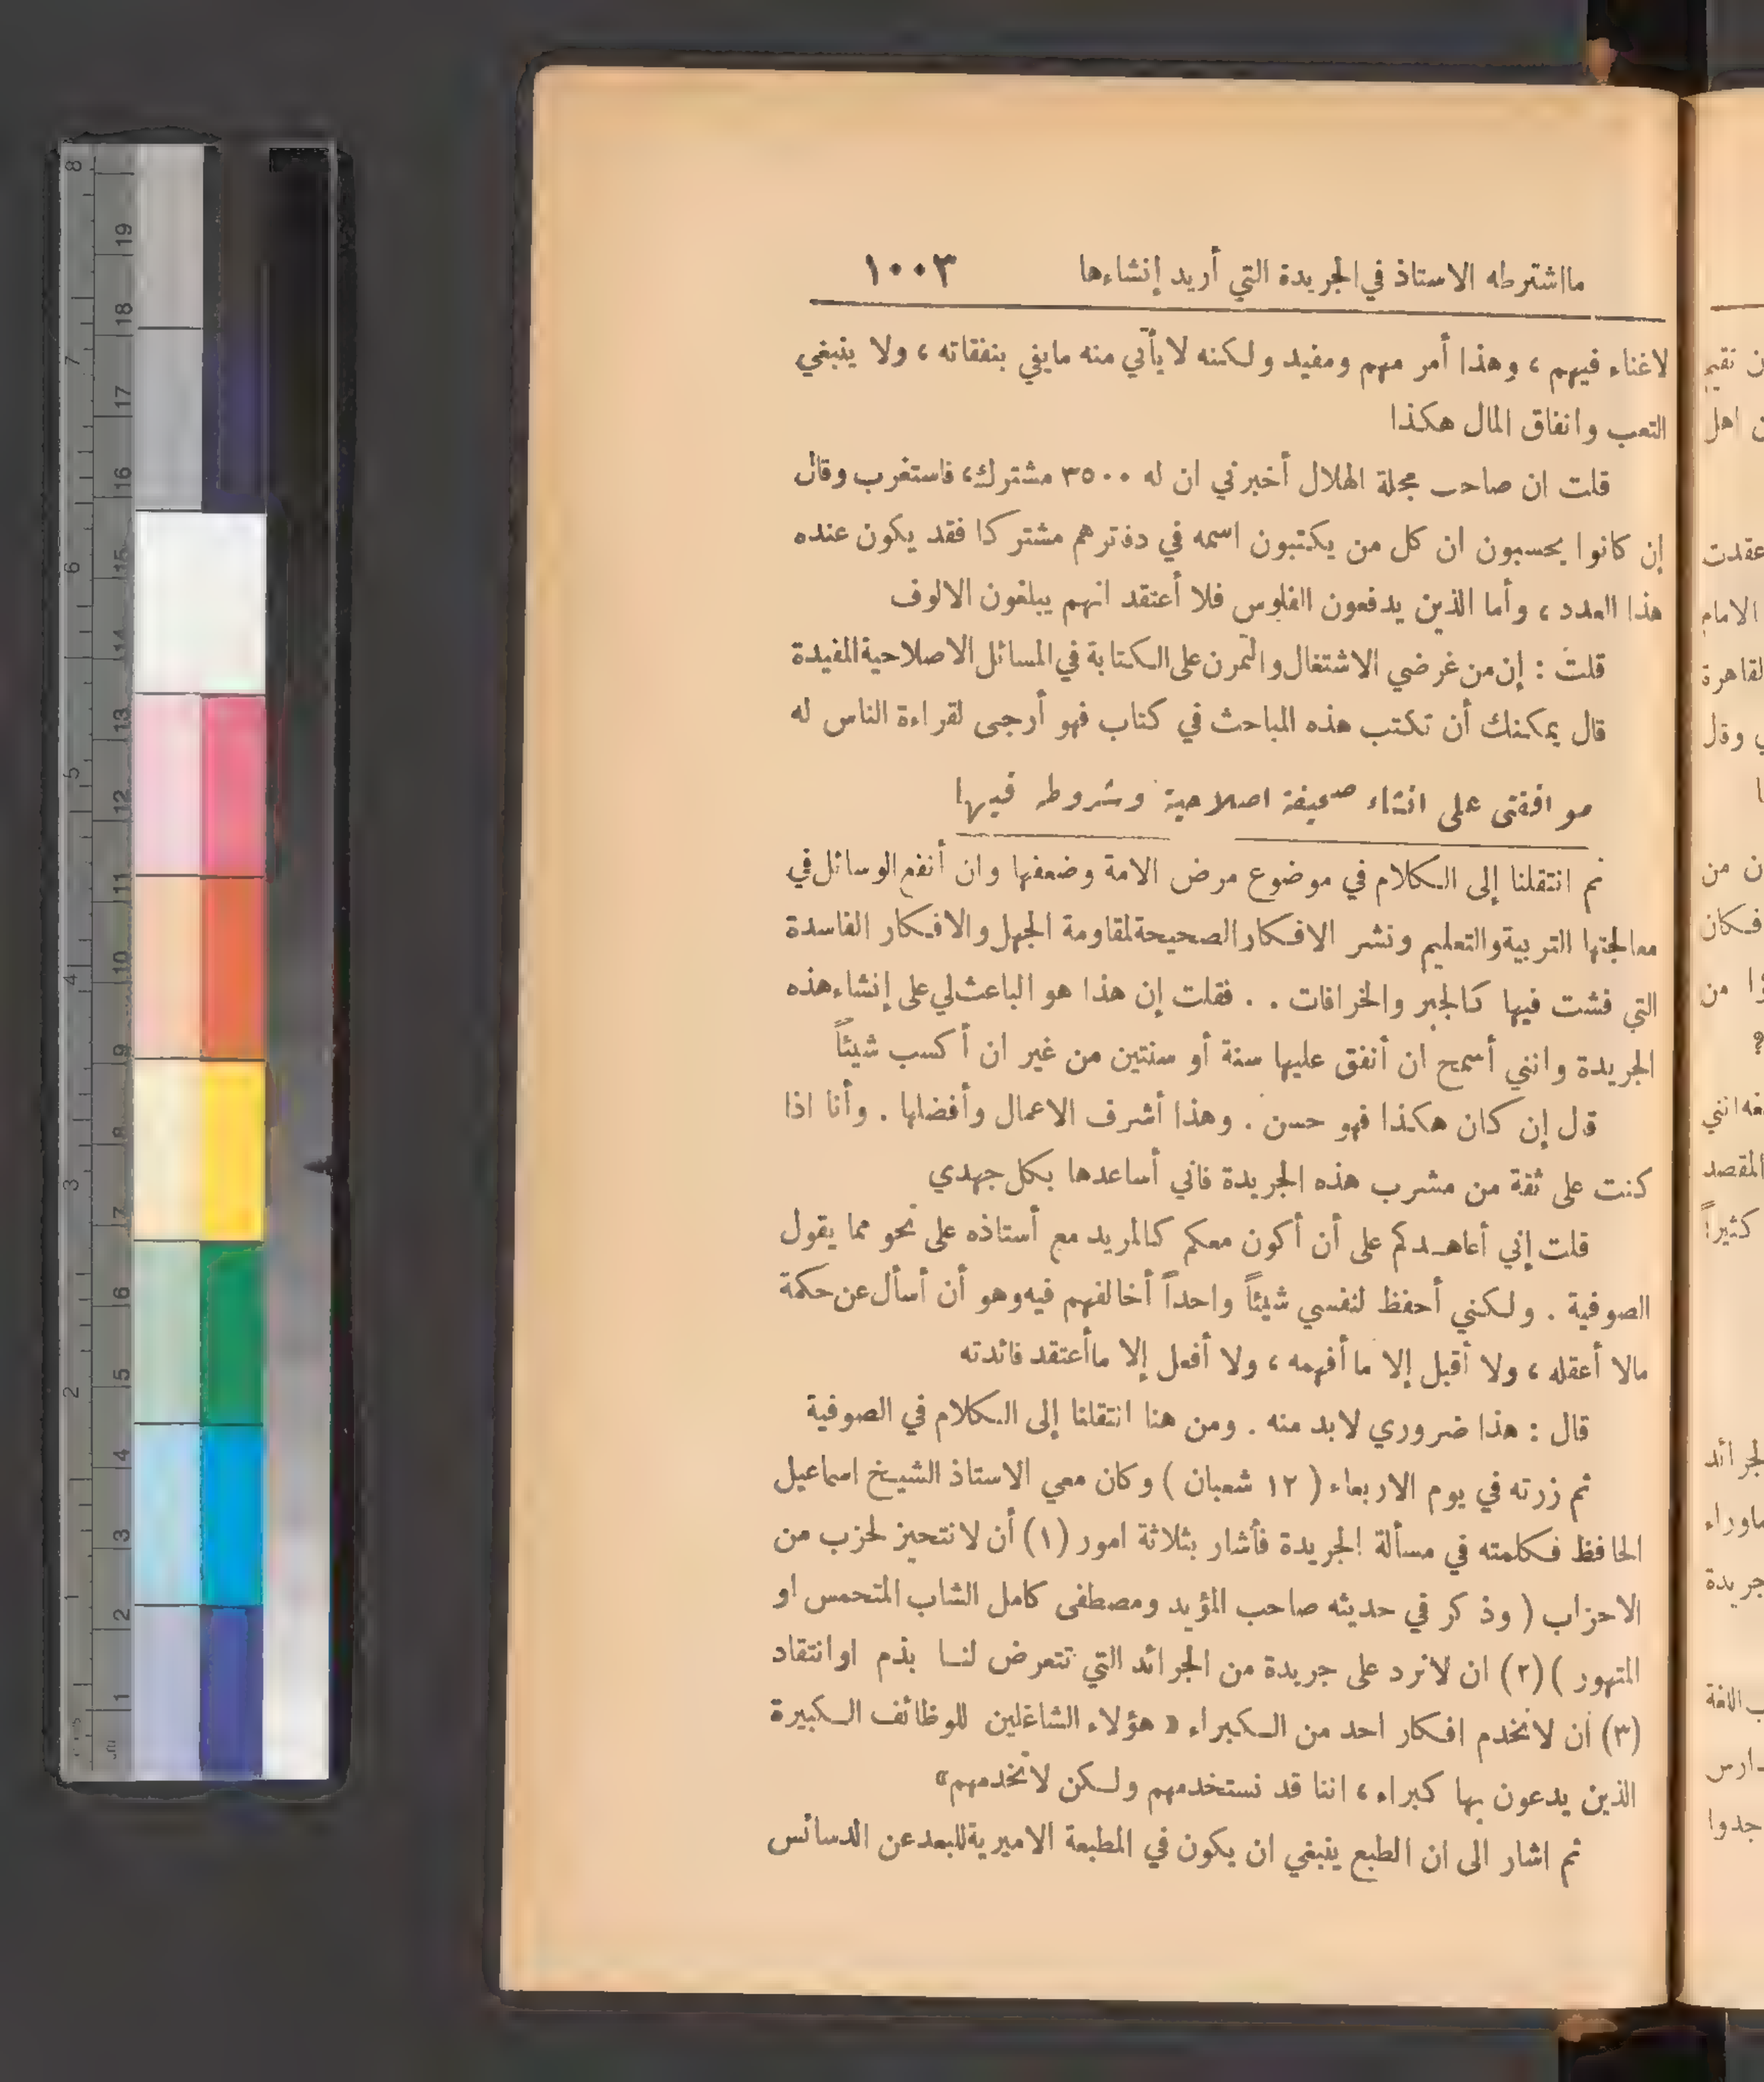 مااشترطه الاستاذ في الجريدة التي أريد إنشاءها ١٠٠٣
لاغناء فيهم ، وهذا أمر مهم ومفيد ولكنه لا يأتي منه مايفي بنفقاته ، ولا ينبغي
التعب وانفاق المال هكذا
قلت ان صاحب مجلة الهلال أخبرني ان له ٣٥٠٠ مشترك، فاستغرب وقال
إن كانوا يحسبون ان كل من يكتبون اسمه في دفترهم مشتركا فقد يكون عنده
هذا العدد ، وأما الذين يدفعون الفلوس فلا أعتقد انهم يبلغون الالوف
قلت : إن من غرضي الاشتغال والتمرن على الكتابة في المسائل الاصلاحية المفيدة
قال يمكنك أن تكتب هذه المباحث في كتاب فهو أرجى لقراءة الناس له
موافقتى على انشاء صحيفة اصلاحية وشروطه فيها
ثم انتقلنا إلى الكلام في موضوع مرض الامة وضعفها وان أنفع الوسائل في
معالجتها التربية والتعليم ونشر الافكار الصحيحة لمقاومة الجهل والافكار الفاسدة
التي فشت فيها كالجبر والخرافات . . فقلت إن هذا هو الباعث لي على إنشاء هذه
الجريدة وانني أسمح ان أنفق عليها سنة أو سنتين من غير ان أكسب شيئاً
قال إن كان هكذا فهو حسن . وهذا أشرف الاعمال وأفضلها . وأنا اذا
كنت على ثقة من مشرب هذه الجريدة فاني أساعدها بكل جهدي
قلت إني أعاهدكم على أن أكون معكم كالمريد مع أستاذه على نحو مما يقول
الصوفية . ولكني أحفظ لنفسي شيئاً واحداً أخالفهم فيه وهو أن أسأل عن حكمة
مالا أعقله ، ولا أقبل إلا ما أفهمه ، ولا أفعل إلا ماأعتقد فائدته
قال : هذا ضروري لابد منه . ومن هنا انتقلنا إلى الكلام في الصوفية
ثم زرته في يوم الاربعاء ( ١٢ شعبان ) وكان معي الاستاذ الشيخ اسماعيل
الحافظ فكلمته في مسألة الجريدة فأشار بثلاثة امور (١) أن لا نتحيز لحزب من
الاحزاب ( وذكر في حديثه صاحب المؤيد ومصطفى كامل الشاب المتحمس او
المتهور ) (٢) ان لا نرد على جريدة من الجرائد التي تتعرض لنا بذم او انتقاد
(٣) أن لا نخدم افكار احد من الكبراء « هؤلاء الشاغلين للوظائف الكبيرة
الذين يدعون بها كبراء ، اننا قد نستخدمهم ولكن لا نخدمهم»
ثم اشار الى ان الطبع ينبغي ان يكون في المطبعة الاميرية للبعد عن الدسائس